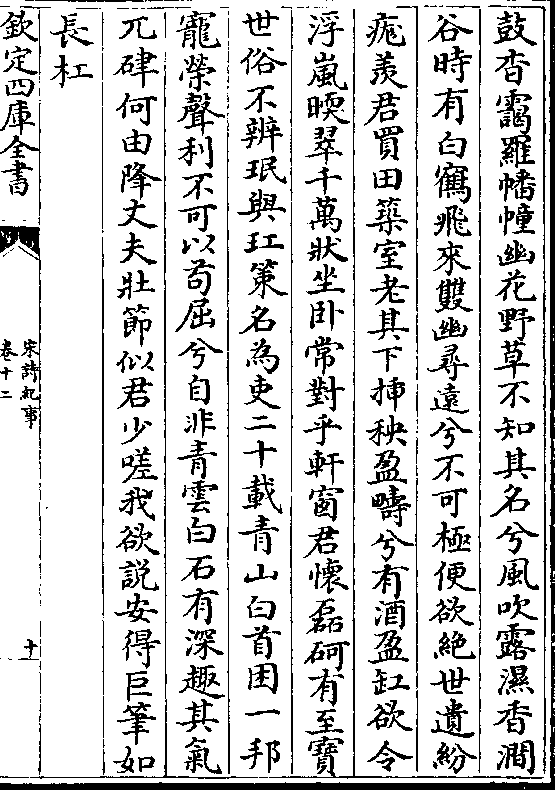 鼓杳靄羅幡幢幽花野草不知其名兮風吹露濕香澗
谷時有白鶴飛來雙幽尋遠兮不可極便欲絶世遺紛
痝羡君買田築室老其下揷秧盈疇兮有酒盈缸欲令
浮嵐曖翠千萬狀坐卧常對乎軒窗君懷磊砢有至寳
世俗不辨珉與玒策名為吏二十載青山白首困一邦
寵榮聲利不可以茍屈兮自非青雲白石有深趣其氣
兀硉何由降丈夫壯節似君少嗟我欲説安得巨筆如
長杠
欽定四庫全書
宋詩紀事
卷十二
十